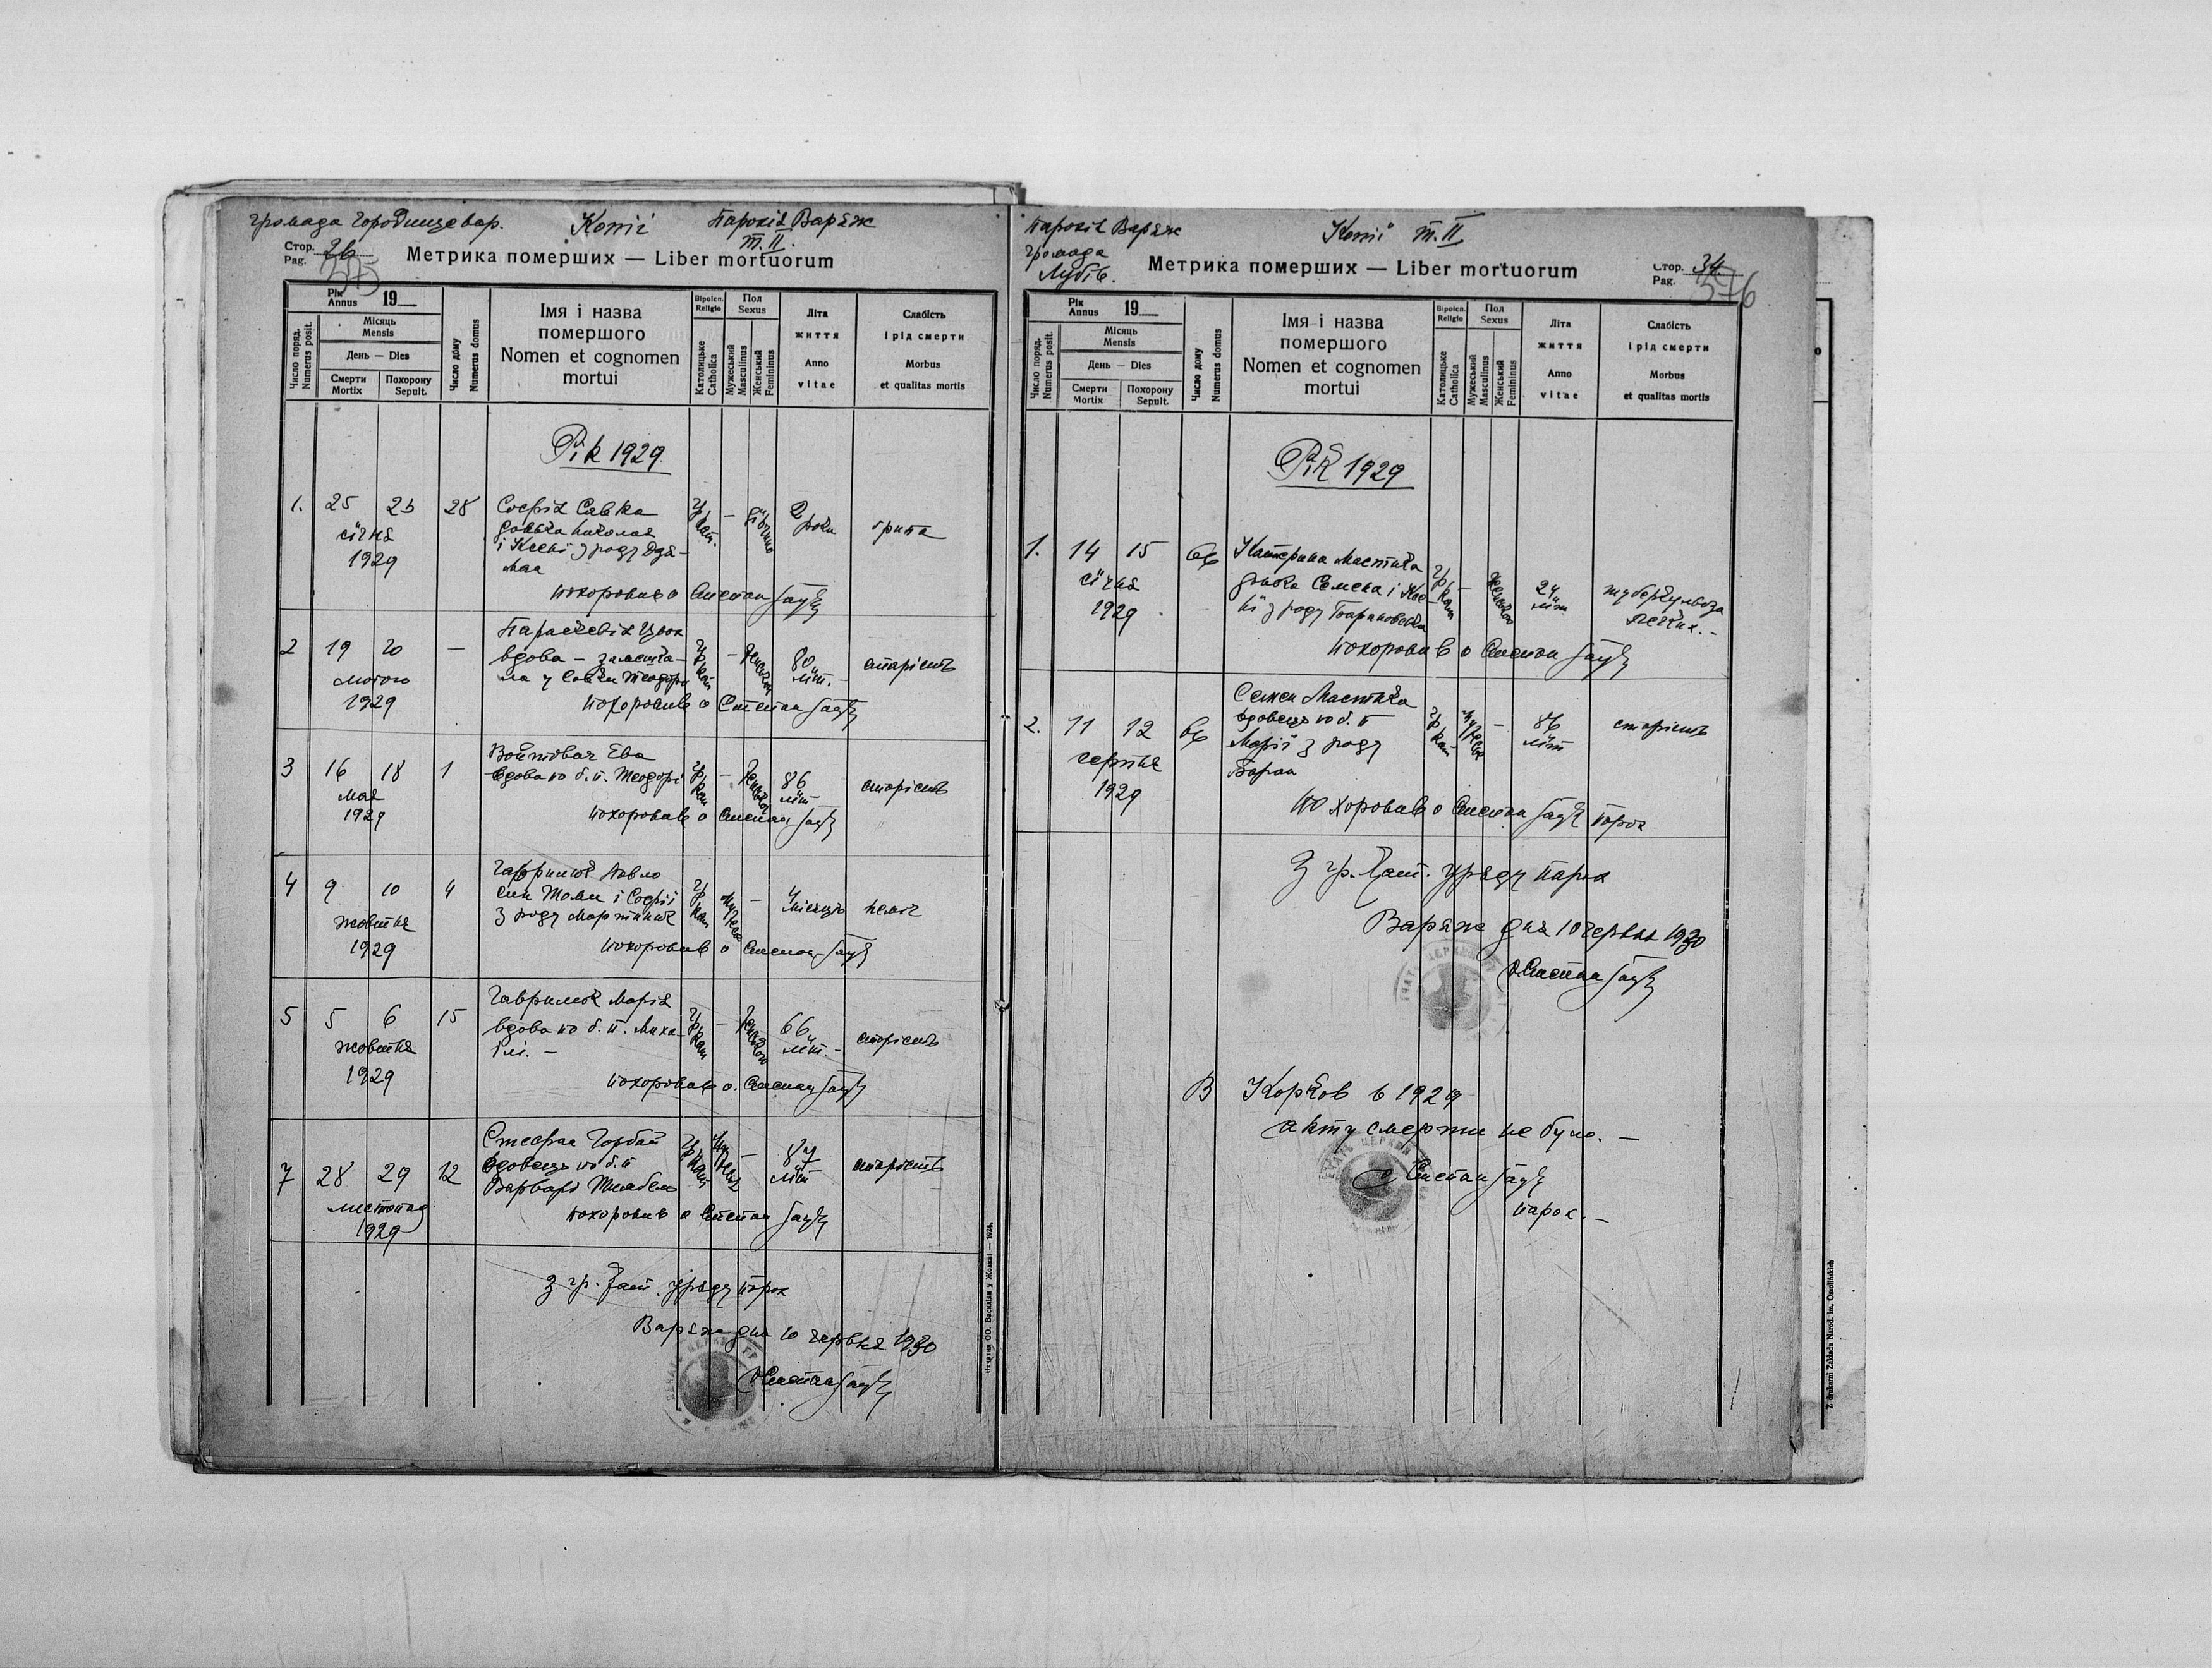 громада Городище вар. Копії Парохія Варяж
т. II.
Стор. 26
Pag. 375
Метрика померших — Liber mortuorum
Рік
Annus 19
Місяць
Mensis
День — Dies
Смерти
Mortix
Похорону
Sepult.
Число поряд.
Numerus posit.
Число дому
Numerus domus
Імя і назва
помершого
Nomen et cognomen
mortui
Віроісп.
Religio
Католицьке
Catholica
Пол
Sexus
Мужеський
Masculinus
Женський
Femininus
Літа
життя
Anno
vitae
Слабість
і рід смерти
Morbus
et qualitas mortis
Рік 1929
1. 25 28 Софія Савка
донька Николая
і Ксенї з роду
гр. кат. — 2 роки грипа
січня
1929
похоронив о Степан
2 19 20 — Параскевія Цьох
вдова
гр. кат — 80 літ. старість
лютого
1929
похоронив о Степан
3 16 18 1 Войтович Ева
вдова по б. п. Теодорі
гр. кат — 86 літ старість
мая
1929
похоронив о Степан
4 9 10 4 Гаврилюк Павло
син Томи і Софії
з роду Мартинюк
гр. кат — 4 місяць неміч
жовтня
1929
похоронив о Степан
5 5 6 15 Гаврилюк Марія
вдова по б. п. Миха-
їлі. —
гр. кат — 66 літ. — старість
жовтня
1929
похоронив о. Степан
7 28 29 12 Стефан Горбай
вдовець по б. п
Варварі
гр. кат — 87 літ старість
листопад
1929
похоронив о Степан
З гр. кат. уряду парох
Варяж дня 10 червня 1930
о Степан
Печатня ОО. Василіян у Жовкві — 1924.
Парохія Варяж Копії т. II
громада
Лубів.
Стор. 34
Pag. 376
Метрика померших — Liber mortuorum
Рік
Annus 19
Місяць
Mensis
День — Dies
Смерти
Mortix
Похорону
Sepult.
Число поряд.
Numerus posit.
Число дому
Numerus domus
Імя і назва
помершого
Nomen et cognomen
mortui
Віроісп.
Religio
Католицьке
Catholica
Пол
Sexus
Мужеський
Masculinus
Женський
Femininus
Літа
життя
Anno
vitae
Слабість
і рід смерти
Morbus
et qualitas mortis
Рік 1929
1. 14 15 66 Катерина Мастика
донька Семена і
з роду Барановська
гр. кат — 24 літ туберкульоза
легких. —
січня
1929
похоронив о Степан
2. 11 12 66 Семен Мастика
вдовець по б. п
Марії з роду
Баран
гр. кат — 86 літ старість
серпня
1929
похоронив о Степан парох
З гр. кат. уряду парох
Варяж дня 10 червня 1930
о. Степан
В Корків в 1929
акту смерти не було. —
о Степан
парох. —
Z drukarni Zakładu Narod. im. Ossolińskich